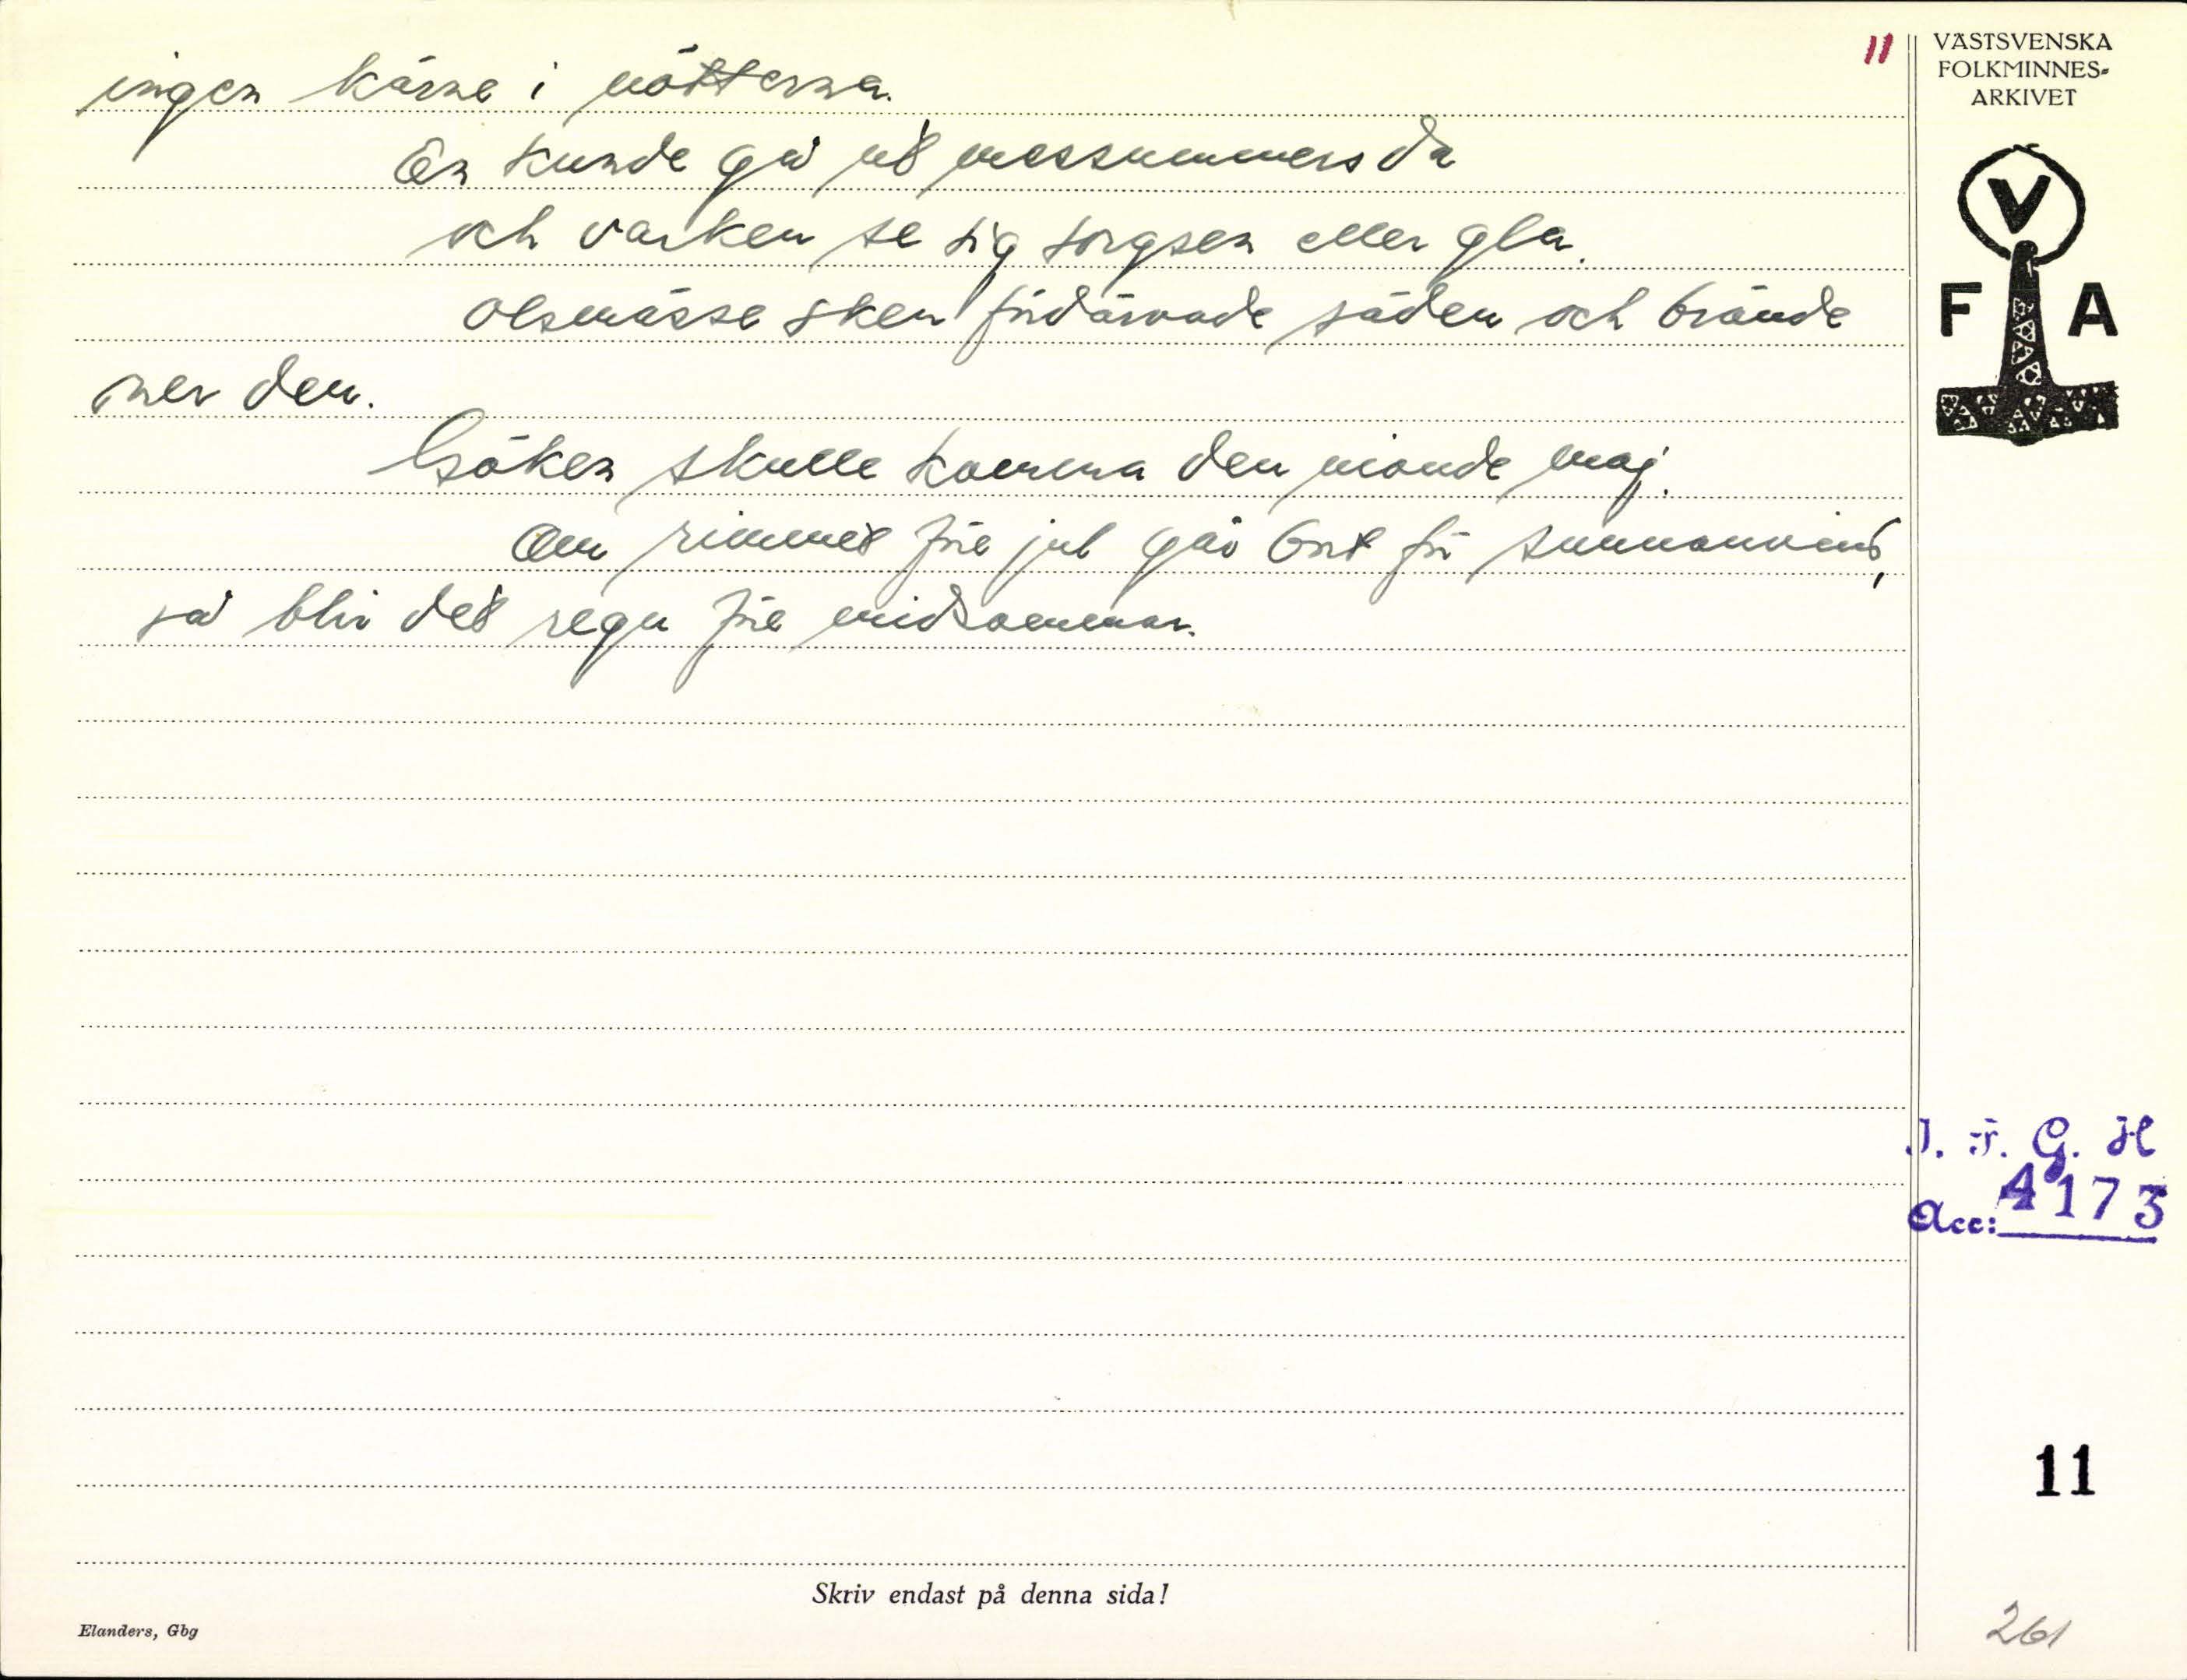 11
VÄSTSVENSKA
FOLKMINNES-
ARKIVET
V
F A
ingen kärne i nötterna.
En kunde gå ut messummersda
och varken se sig sorgsen eller gla.
Olsmässe sken fördärvade säden och brände
ner den.
Göken skulle komma den nionde maj.
Om rimmet före jul går bort för sunnanvind,
så blir det regn före midsommar.
I. F. G. H
Acc: 4173
11
Skriv endast på denna sida!
Elanders, Gbg
261